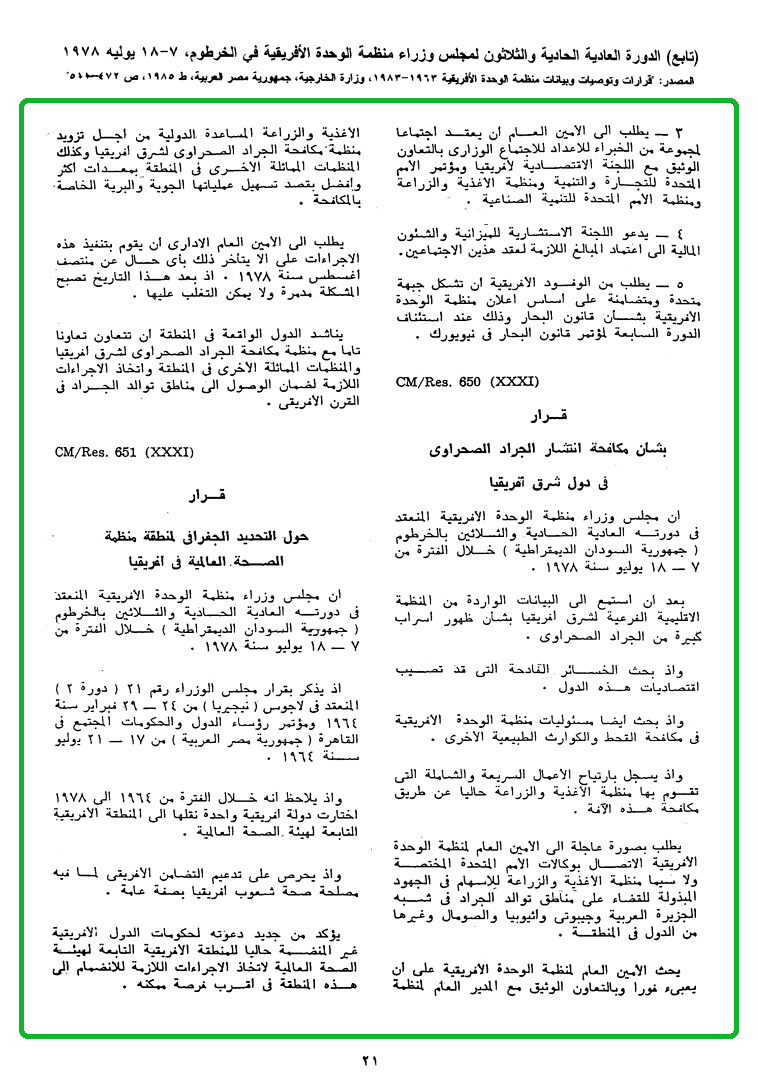 (تابع) الدورة العادية الحادية والثلاثون لمجلس وزراء منظمة الوحدة الأفريقية في الخرطوم، ٧-١٨ يوليه ١٩٧٨
المصدر: "قرارات وتوصيات وبيانات منظمة الوحدة الأفريقية ١٩٦٣-١٩٨٣، وزارة الخارجية، جمهورية مصر العربية، ط ١٩٨٥، ص ٤٧٢-
٣ — يطلب الى الأمين العـام أن يعقـد اجتماعا
لمجموعة من الخبراء للاعداد للاجتماع الوزارى بالتعاون
الوثيق مع اللجنة الاقتصـادية لافريقيا ومؤتمر الأمم
المتحدة للتجـارة والتنمية ومنظمة الأغذية والزراعة
ومنظمة الأمم المتحدة للتنمية الصناعية .
٤ — يدعو اللجنة الاستشارية للميزانية والشئون
المالية الى اعتماد المبالغ اللازمة لعقد هذين الاجتماعين.
٥ — يطلب من الوفـود الأفريقية أن تشكل جبهة
متحدة ومتضامنة على أساس اعلان منظمة الوحدة
الأفريقية بشـأن قانون البحار وذلك عند استئناف
الدورة السابعة لمؤتمر قانون البحار فى نيويورك .
CM/Res. 650 (XXXI)
قـرار
بشأن مكافحة انتشار الجراد الصحراوى
فى دول شرق أفريقيا
ان مجلس وزراء منظمة الوحدة الأفريقية المنعقد
فى دورتـه العادية الحـادية والثـلاثين بالخرطوم
( جمهورية السودان الديمقراطية ) خـلال الفترة من
٧ — ١٨ يوليو سنة ١٩٧٨ .
بعد أن استمع الى البيانات الواردة من المنظمة
الاقليمية الفرعية لشرق أفريقيا بشأن ظهور أسراب
كبيرة من الجراد الصحراوى .
واذ بحث الخسـائر الفادحة التى قد تصـيب
اقتصاديات هـذه الدول .
واذ بحث أيضا مسئوليات منظمة الوحدة الأفريقية
فى مكافحة القحط والكوارث الطبيعية الأخرى .
واذ يسجل بارتياح الأعمال السريعة والشاملة التى
تقـوم بها منظمة الأغذية والزراعة حاليا عن طريق
مكافحة هـذه الآفة .
يطلب بصورة عاجلة الى الأمين العام لمنظمة الوحدة
الأفريقية الاتصـال بوكالات الأمم المتحدة المختصـة
ولا سيما منظمة الأغذية والزراعة للاسهام فى الجهود
المبذولة للقضاء على مناطق توالد الجراد فى شـبه
الجزيرة العربية وجيبوتى واثيوبيا والصومال وغيرها
من الدول فى المنطقـة .
يحث الأمين العام لمنظمة الوحدة الأفريقية على أن
يعبىء فورا وبالتعاون الوثيق مع المدير العام لمنظمة
الأغذية والزراعة المساعدة الدولية من أجـل تزويد
منظمة مكافحة الجراد الصحراوى لشرق أفريقيا وكذلك
المنظمات المماثلة الأخـرى فى المنطقة بمعـدات أكثر
وأفضل بقصد تسهيل عملياتها الجوية والبرية الخاصة
بالمكافحة .
يطلب الى الأمين العام الادارى أن يقوم بتنفيذ هذه
الاجراءات على ألا يتأخر ذلك بأى حـال عن منتصف
أغسطس سنة ١٩٧٨ . اذ بعد هـذا التاريخ تصبح
المشكلة مدمرة ولا يمكن التغلب عليها .
يناشد الدول الواقعة فى المنطقة أن تتعاون تعاونا
تاما مع منظمة مكافحة الجراد الصحراوى لشرق أفريقيا
والمنظمات المماثلة الأخرى فى المنطقة واتخاذ الاجراءات
اللازمة لضمان الوصول الى مناطق توالد الجـراد فى
القرن الأفريقى .
CM/Res. 651 (XXXI)
قـرار
حول التحديد الجغرافى لمنطقة منظمة
الصحـة العالمية فى أفريقيا
ان مجلس وزراء منظمة الوحدة الأفريقية المنعقد
فى دورتـه العادية الحـادية والثـلاثين بالخرطوم
( جمهورية السودان الديمقراطية ) خـلال الفترة من
٧ — ١٨ يوليو سنة ١٩٧٨ .
اذ يذكر بقرار مجلس الوزراء رقم ٢١ ( دورة ٢ )
المنعقد فى لاجوس ( نيجيريا ) من ٢٤ — ٢٩ فبراير سنة
١٩٦٤ ومؤتمر رؤساء الدول والحكومات المجتمع فى
القاهرة ( جمهورية مصر العربية ) من ١٧ — ٢١ يوليو
سـنة ١٩٦٤ .
واذ يلاحظ أنه خـلال الفترة من ١٩٦٤ الى ١٩٧٨
اختارت دولة أفريقية واحدة نقلها الى المنطقة الأفريقية
التابعة لهيئة الصحة العالمية .
واذ يحرص على تدعيم التضامن الأفريقى لمـا فيه
مصلحة صحة شعوب أفريقيا بصفة عامة .
يؤكد من جديد دعوته لحكومات الدول الأفريقية
غير المنضمـة حاليا للمنطقة الأفريقية التابعة لهيئـة
الصحة العالمية لاتخاذ الاجراءات اللازمة للانضمام الى
هـذه المنطقة فى أقـرب فرصة ممكنه .
٢١